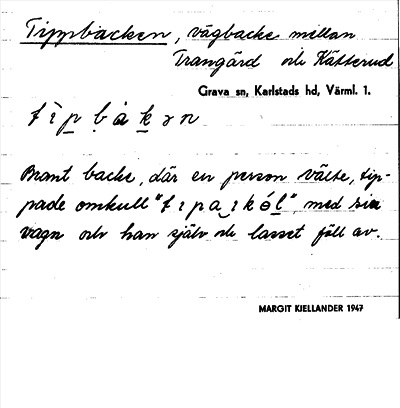 Tippbacken, vägbacke mellan
Trangärd och Kätterud
Grava sn, Karlstads hd, Värml. 1.
Brant backe, där en person välte, tip-
pade omkull " ", med sin
vagn och han själv och lasset föll av.
MARGIT KJELLANDER 1947